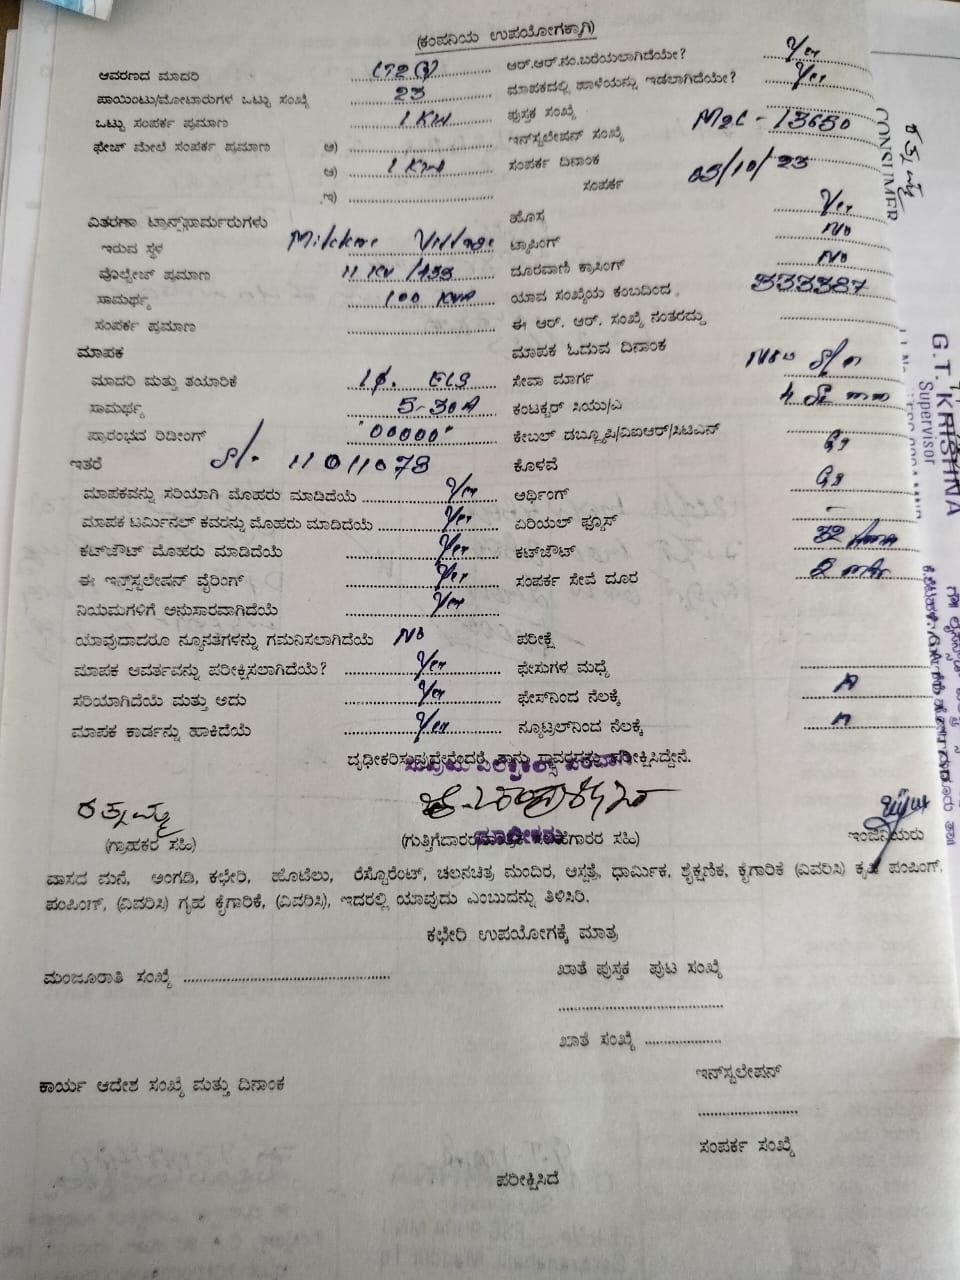 (ಕಂಪನಿಯ ಉಪಯೋಗಕ್ಕಾಗಿ)
ಆವರಣದ ಮಾದರಿ ಆರ್.ಆರ್.ನಂ.ಬರೆಯಲಾಗಿದೆಯೇ? Yes
ಪಾಯಿಂಟು/ಮೋಟಾರುಗಳ ಒಟ್ಟು ಸಂಖ್ಯೆ 23 ಮಾಪಕದಲ್ಲಿ ಹಾಳೆಯನ್ನು ಇಡಲಾಗಿದೆಯೇ? Yes
ಒಟ್ಟು ಸಂಪರ್ಕ ಪ್ರಮಾಣ 1 KW ಪುಸ್ತಕ ಸಂಖ್ಯೆ
ಫೇಜ್ ಮೇಲೆ ಸಂಪರ್ಕ ಪ್ರಮಾಣ ಅ) ಇನ್‌ಸ್ಟಲೇಷನ್ ಸಂಖ್ಯೆ M2C - 13650
ಆ) 1 KW ಸಂಪರ್ಕ ದಿನಾಂಕ 25/10/23
ಇ) ಸಂಪರ್ಕ
ವಿತರಣಾ ಟ್ರಾನ್ಸ್‌ಫಾರ್ಮರುಗಳು ಹೊಸ Yes
ಇರುವ ಸ್ಥಳ Village ಟ್ಯಾಪಿಂಗ್ No
ವೋಲ್ಟೇಜ್ ಪ್ರಮಾಣ 11 KV /433 ದೂರವಾಣಿ ಕ್ರಾಸಿಂಗ್ No
ಸಾಮರ್ಥ್ಯ 100 KVA ಯಾವ ಸಂಖ್ಯೆಯ ಕಂಬದಿಂದ 333387
ಸಂಪರ್ಕ ಪ್ರಮಾಣ ಈ ಆರ್. ಆರ್. ಸಂಖ್ಯೆ ನಂತರದ್ದು
ಮಾಪಕ ಮಾಪಕ ಓದುವ ದಿನಾಂಕ
ಮಾದರಿ ಮತ್ತು ತಯಾರಿಕೆ 1φ. ಸೇವಾ ಮಾರ್ಗ
ಸಾಮರ್ಥ್ಯ 5-30A ಕಂಟಕ್ಟರ್ ಸಿಯು/ಎ
ಪ್ರಾರಂಭದ ರಿಡಿಂಗ್ "00000" ಕೇಬಲ್ ಡಬ್ಲ್ಯೂಪಿ/ವಿಐಆರ್/ಸಿಟಿಎಸ್
ಇತರೆ 11011073 ಕೊಳವೆ GI
ಮಾಪಕವನ್ನು ಸರಿಯಾಗಿ ಮೊಹರು ಮಾಡಿದೆಯೆ Yes ಆರ್ಥಿಂಗ್ GI
ಮಾಪಕ ಟರ್ಮಿನಲ್ ಕವರನ್ನು ಮೊಹರು ಮಾಡಿದೆಯೆ Yes ಏರಿಯಲ್ ಫ್ಯೂಸ್ -
ಕಟ್‌ಔಟ್ ಮೊಹರು ಮಾಡಿದೆಯೆ Yes ಕಟ್‌ಔಟ್ 32
ಈ ಇನ್ಸ್‌ಸ್ಟಲೇಷನ ವೈರಿಂಗ್ Yes ಸಂಪರ್ಕ ಸೇವೆ ದೂರ 2 mtr
ನಿಯಮಗಳಿಗೆ ಅನುಸಾರವಾಗಿದೆಯೆ Yes
ಯಾವುದಾದರೂ ನ್ಯೂನತೆಗಳನ್ನು ಗಮನಿಸಲಾಗಿದೆಯೆ No ಪರೀಕ್ಷೆ
ಮಾಪಕ ಆವರ್ತವನ್ನು ಪರೀಕ್ಷಿಸಲಾಗಿದೆಯೆ? Yes ಫೇಸುಗಳ ಮಧ್ಯೆ
ಸರಿಯಾಗಿದೆಯೆ ಮತ್ತು ಅದು Yes ಫೇಸ್‌ನಿಂದ ನೆಲಕ್ಕೆ
ಮಾಪಕ ಕಾರ್ಡನ್ನು ಹಾಕಿದೆಯೆ Yes ನ್ಯೂಟ್ರಲ್‌ನಿಂದ ನೆಲಕ್ಕೆ
ಪರೀಕ್ಷಿಸಿದ್ದೇನೆ.
(ಗ್ರಾಹಕರ ಸಹಿ) ಸಹಿ) ಇಂಜಿನಿಯರು
ವಾಸದ ಮನೆ, ಅಂಗಡಿ, ಕಛೇರಿ, ಹೊಟೆಲು, ರೆಸ್ಟೋರೆಂಟ್, ಚಲನಚಿತ್ರ ಮಂದಿರ, ಆಸ್ಪತ್ರೆ, ಧಾರ್ಮಿಕ, ಶೈಕ್ಷಣಿಕ, ಕೈಗಾರಿಕೆ (ವಿವರಿಸಿ) ಕೃಷಿ ಪಂಪಿಂಗ್,
ಪಂಪಿಂಗ್, (ವಿವರಿಸಿ) ಗೃಹ ಕೈಗಾರಿಕೆ, (ವಿವರಿಸಿ), ಇದರಲ್ಲಿ ಯಾವುದು ಎಂಬುದನ್ನು ತಿಳಿಸಿರಿ.
ಕಛೇರಿ ಉಪಯೋಗಕ್ಕೆ ಮಾತ್ರ
ಮಂಜೂರಾತಿ ಸಂಖ್ಯೆ ಖಾತೆ ಪುಸ್ತಕ ಪುಟ ಸಂಖ್ಯೆ
ಖಾತೆ ಸಂಖ್ಯೆ
ಕಾರ್ಯ ಆದೇಶ ಸಂಖ್ಯೆ ಮತ್ತು ದಿನಾಂಕ ಇನ್‌ಸ್ಟಲೇಷನ್
ಸಂಪರ್ಕ ಸಂಖ್ಯೆ
ಪರೀಕ್ಷಿಸಿದೆ
CONSUMER
G.T. KRISHNA
Supervisor